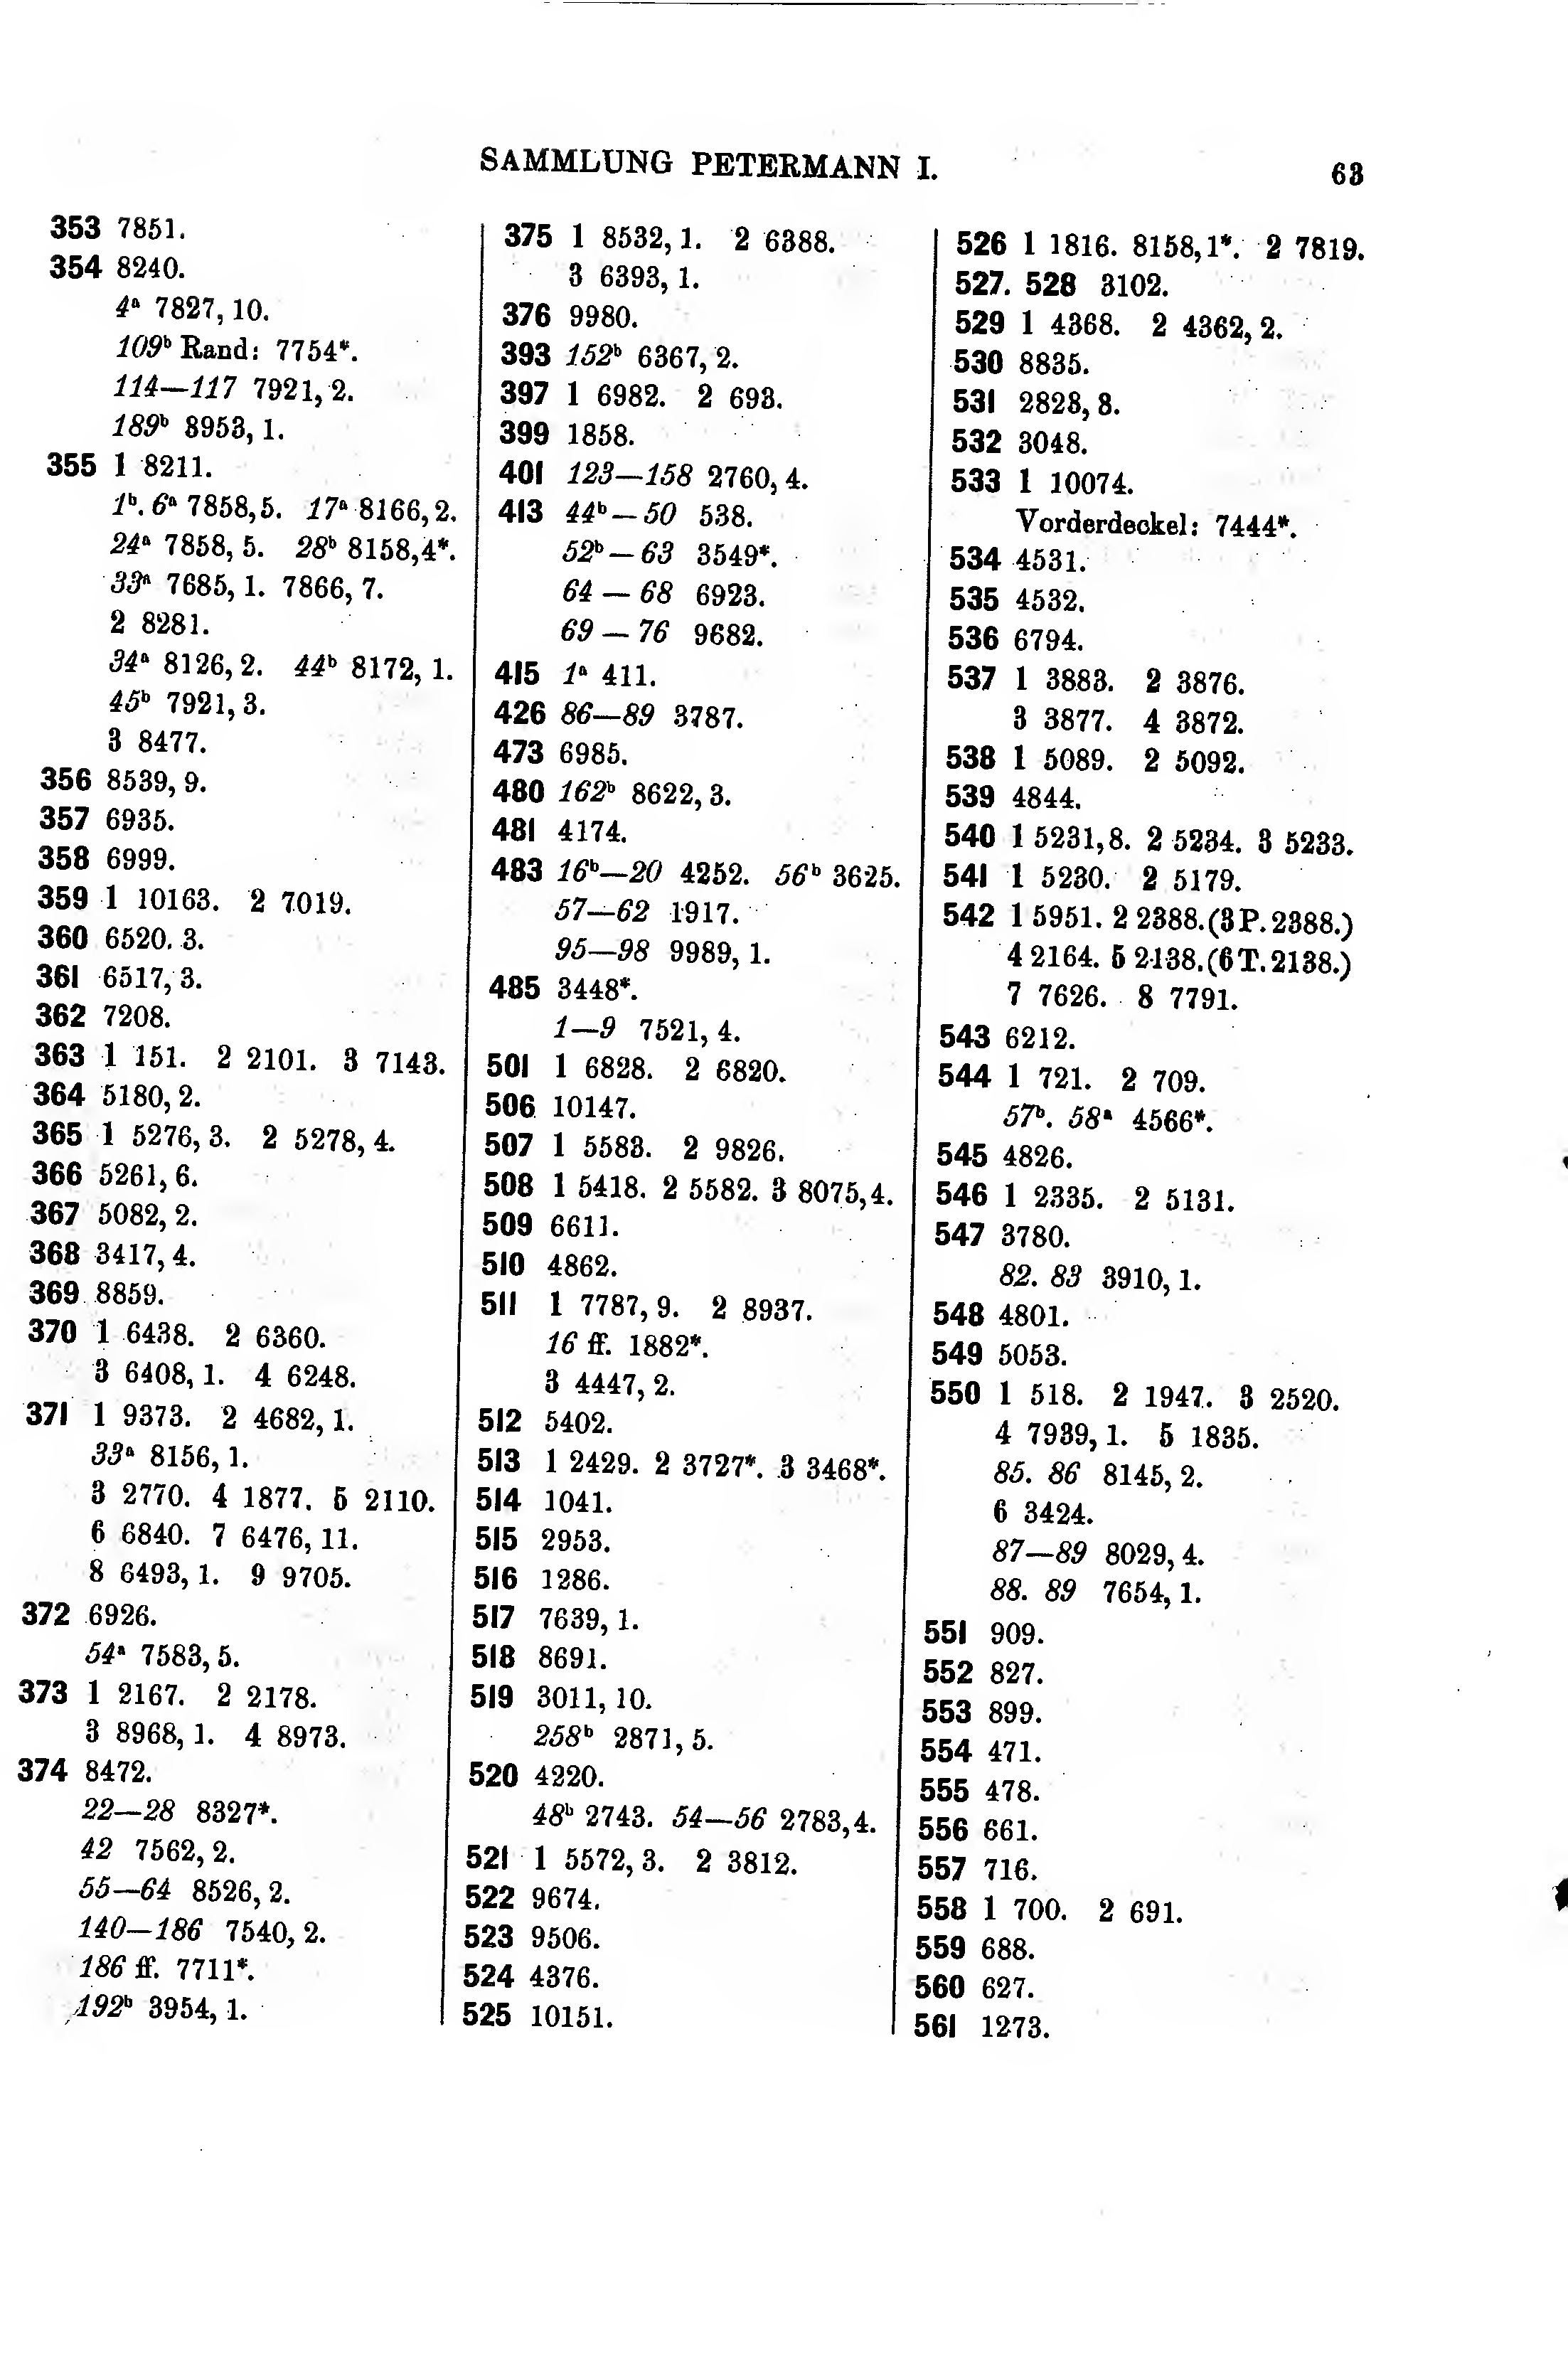 SAMMLUNG PETERMANN I.
63
353 7851.
354 8240.
4ᵃ 7827, 10.
109ᵇ Rand: 7754*.
114—117 7921, 2.
189ᵇ 8953, 1.
355 1 8211.
1ᵇ. 6ᵃ 7858, 5. 17ᵃ 8166, 2.
24ᵃ 7858, 5. 28ᵇ 8158,4*.
33ᵃ 7685, 1. 7866, 7.
2 8281.
34ᵃ 8126, 2. 44ᵇ 8172, 1.
45ᵇ 7921, 3.
3 8477.
356 8539, 9.
357 6935.
358 6999.
359 1 10163. 2 7019.
360 6520. 3.
361 6517, 3.
362 7208.
363 1 151. 2 2101. 3 7143.
364 5180, 2.
365 1 5276, 3. 2 5278, 4.
366 5261, 6.
367 5082, 2.
368 3417, 4.
369 8859.
370 1 6438. 2 6360.
3 6408, 1. 4 6248.
371 1 9373. 2 4682, 1.
33ᵃ 8156, 1.
3 2770. 4 1877. 5 2110.
6 6840. 7 6476, 11.
8 6493, 1. 9 9705.
372 6926.
54ᵃ 7583, 5.
373 1 2167. 2 2178.
3 8968, 1. 4 8973.
374 8472.
22—28 8327*.
42 7562, 2.
55—64 8526, 2.
140—186 7540, 2.
186 ff. 7711*.
192ᵇ 3954, 1.
375 1 8532, 1. 2 6388.
3 6393, 1.
376 9980.
393 152ᵇ 6367, 2.
397 1 6982. 2 693.
399 1858.
401 123—158 2760, 4.
413 44ᵇ—50 538.
52ᵇ—63 3549*.
64—68 6923.
69—76 9682.
415 1ᵃ 411.
426 86—89 3787.
473 6985.
480 162ᵇ 8622, 3.
481 4174.
483 16ᵇ—20 4252. 56ᵇ 3625.
57—62 1917.
95—98 9989, 1.
485 3448*.
1—9 7521, 4.
501 1 6828. 2 6820.
506 10147.
507 1 5583. 2 9826.
508 1 5418. 2 5582. 3 8075,4.
509 6611.
510 4862.
511 1 7787, 9. 2 8937.
16 ff. 1882*.
3 4447, 2.
512 5402.
513 1 2429. 2 3727*. 3 3468*.
514 1041.
515 2953.
516 1286.
517 7639, 1.
518 8691.
519 3011, 10.
258ᵇ 2871, 5.
520 4220.
48ᵇ 2743. 54—56 2783,4.
521 1 5572, 3. 2 3812.
522 9674.
523 9506.
524 4376.
525 10151.
526 1 1816. 8158,1*. 2 7819.
527. 528 3102.
529 1 4368. 2 4362, 2.
530 8835.
531 2828, 8.
532 3048.
533 1 10074.
Vorderdeckel: 7444*.
534 4531.
535 4532.
536 6794.
537 1 3883. 2 3876.
3 3877. 4 3872.
538 1 5089. 2 5092.
539 4844.
540 1 5231,8. 2 5234. 3 5233.
541 1 5230. 2 5179.
542 1 5951. 2 2388. (3 P. 2388.)
4 2164. 5 2138. (6 T. 2138.)
7 7626. 8 7791.
543 6212.
544 1 721. 2 709.
57ᵇ. 58ᵃ 4566*.
545 4826.
546 1 2335. 2 5131.
547 3780.
82. 83 3910, 1.
548 4801.
549 5053.
550 1 518. 2 1947. 3 2520.
4 7939, 1. 5 1835.
85. 86 8145, 2.
6 3424.
87—89 8029, 4.
88. 89 7654, 1.
551 909.
552 827.
553 899.
554 471.
555 478.
556 661.
557 716.
558 1 700. 2 691.
559 688.
560 627.
561 1273.